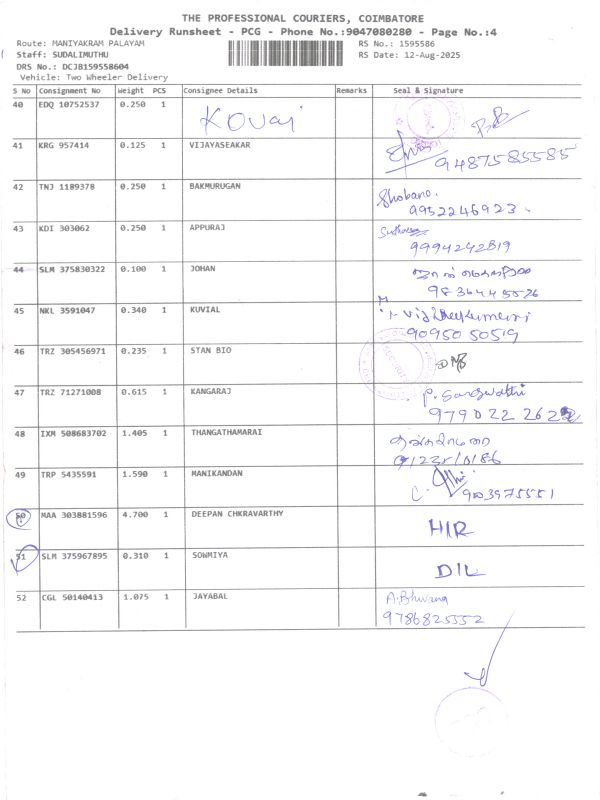 THE PROFESSIONAL COURIERS, COIMBATORE
Delivery Runsheet - PCG - Phone No.:9047080280 - Page No.:4
Route: MANIYAKRAM PALAYAM RS No.: 1595586
Staff: SUDALIMUTHU RS Date: 12-Aug-2025
DRS No.: DCJB159558604
Vehicle: Two Wheeler Delivery
S No Consignment No Weight PCS Consignee Details Remarks Seal & Signature
40 EDQ 10752537 0.250 1 Kovai
41 KRG 957414 0.125 1 VIJAYASEAKAR 9487585585
42 TNJ 1189378 0.250 1 BAKMURUGAN Shobana.
9952246923
43 KDI 303062 0.250 1 APPURAJ
9994242819
44 SLM 375830322 0.100 1 JOHAN
9836445526
45 NKL 3591047 0.340 1 KUVIAL
9095050519
46 TRZ 305456971 0.235 1 STAN BIO
47 TRZ 71271008 0.615 1 KANGARAJ P. Sarswathi
979022 2622
48 IXM 508683702 1.405 1 THANGATHAMARAI
49 TRP 5435591 1.590 1 MANIKANDAN
9003975551
50 MAA 303881596 4.700 1 DEEPAN CHKRAVARTHY HIR
51 SLM 375967895 0.310 1 SOWMIYA DIL
52 CGL 50140413 1.075 1 JAYABAL A.Bhuvana
9786825552